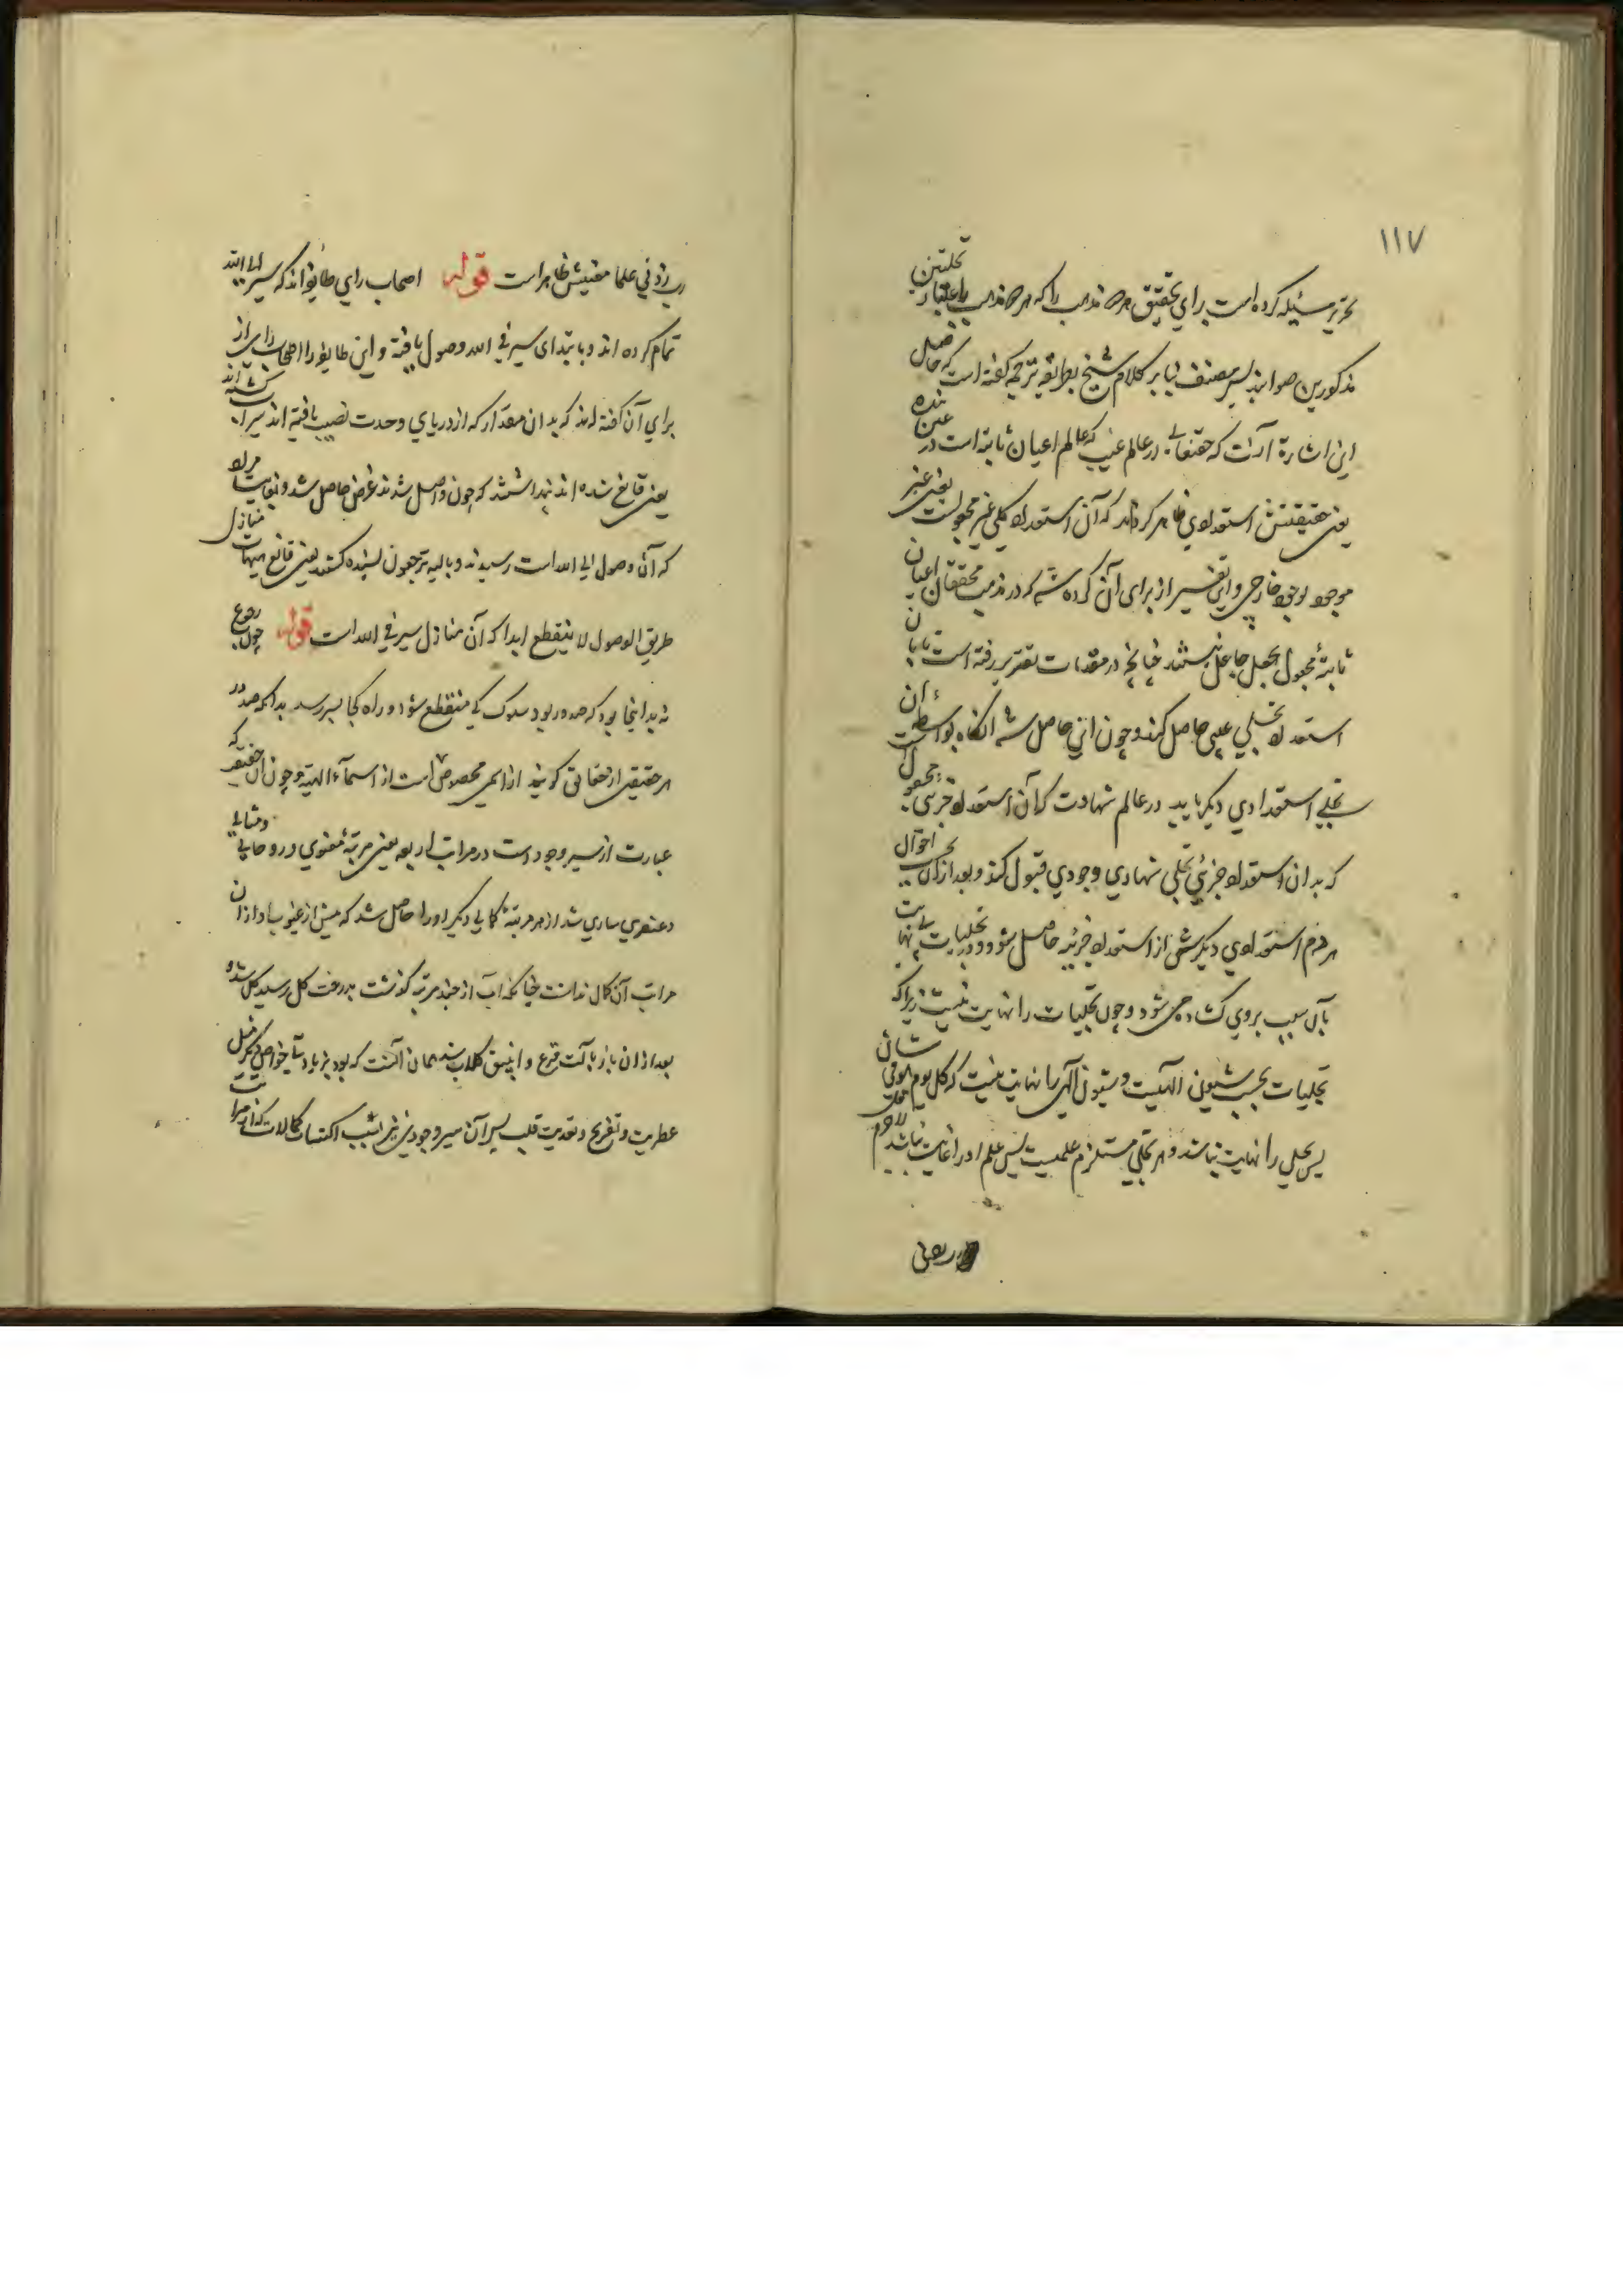 ١١٧
تحریر مسئله کرده است برای تحقیق هر دو مذهب را که هر دو مذهب باعتبار تجلیتین
مذکورین صوابند پس مصنف بنابر کلام شیخ بطریق ترجمه گفته است که حاصل
این اشارة آنست که حقتعالی در عالم غیب که عالم اعیان ثابته است در عین بنده
یعنی حقیقتش استعدادی ظاهر کرداند که آن استعداد کلی غیر مجعولست یعنی غیر
موجود بوجود خارجی و این تفسیر از برای آن کرده شد که در مذهب محققان اعیان
ثابته مجعول بجعل جاعل نیستند چنانچه در مقدمات تقریر رفته است تا بآن
استعداد تجلی غیبی حاصل کند و چون این حاصل شد آنگاه بواسطه آن
تجلی استعدادی دیکر یابد در عالم شهادت که آن استعداد جزیی مجعول
که بدان استعداد جزئی تجلی شهادی وجودی قبول کند و بعد از آن بحسب احوال
هر دم استعدادی دیکرش از استعداد جزئیه حاصل شود و در تجلیات بی نهایت
بآن سبب بروی کشاده می شود و چون تجلیات را نهایت نیست زیرا که
تجلیات بحسب شیون الهیست و شیون الهی را نهایت نیست که کل یوم هو فی شان
پس تجلی را نهایت نباشد و هر تجلی مستلزم علمیست پس علم او را غایت نباشد لاجرم
رب زدنی علما مفیدش ظاهر است قوله اصحاب رای طایفه اند که سیر الی الله
تمام کرده اند و بابتدای سیر فی الله وصول یافته و این طایفه را اصحاب رای از
برای آن کفته اند که بدان مقدار که از دریای وحدت نصیب یافته اند سیراب کشته اند
یعنی قانع شده اند پنداشتند که چون واصل شدند غرض حاصل شد و بغایت مراد
که آن وصول الی الله است رسیدند و بالیه ترجعون بسنده کردند یعنی قانع هیهات منازل
طریق الوصول لا ینقطع ابدا که آن منازل سیر فی الله است قوله چون رجوع
نه بد اینجا بود که صدور بود سلوک کی منقطع شود و راه کجا بسر رسد بدانکه صدور
هر حقیقتی از حقایق کونیه از اسمی مخصوص است از اسماء الهیه و چون آن حقیقت که
عبارت از سیر وجود است در مراتب اربعه یعنی مرتبهٔ معنوی و روحانی و مثالی
و عنصری ساری شد از هر مرتبهٔ کمالی دیکر او را حاصل شد که پیش از عبور او از آن
مراتب آن کمال نداشت چنانکه آب از چند مرتبه کذشت بدرخت کل رسید کل شد و
بعد از آن باز بآلت قرع و انبیق کلاب شد همان آنست که بود بزیادتی خواص دیکر مثل
عطریت و تفریح و تقویت قلب پس آن سیر وجودی نیز بسبب اکتساب کمالات که از مراتب